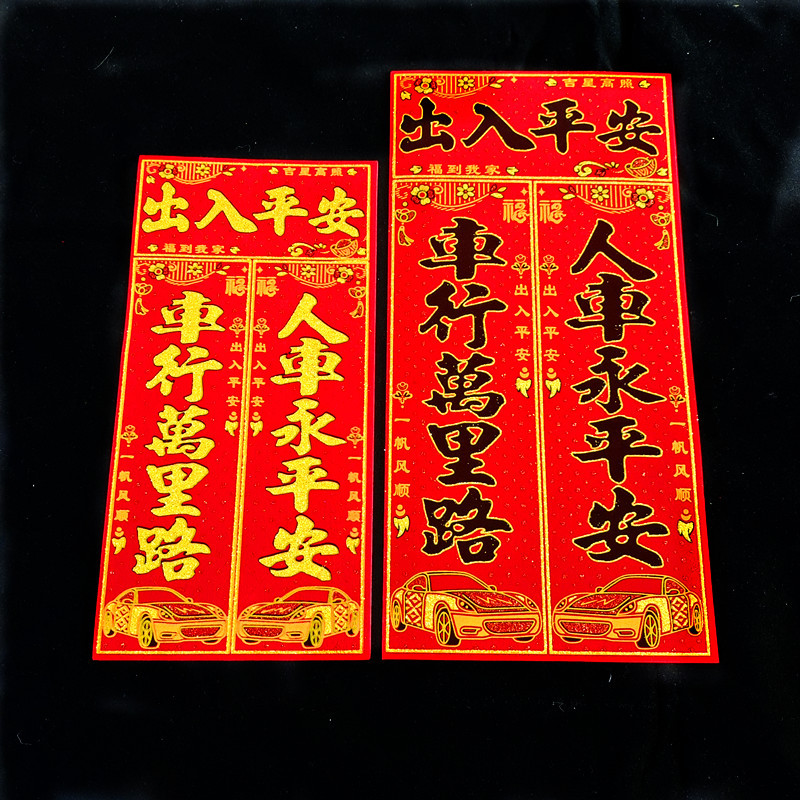 吉星高照
出入平安
福到我家
福
福
車行萬里路
出入平安
一帆风顺
人車永平安
出入平安
一帆风顺
吉星高照
出入平安
福到我家
福
福
車行萬里路
出入平安
一帆风顺
人車永平安
出入平安
一帆风顺